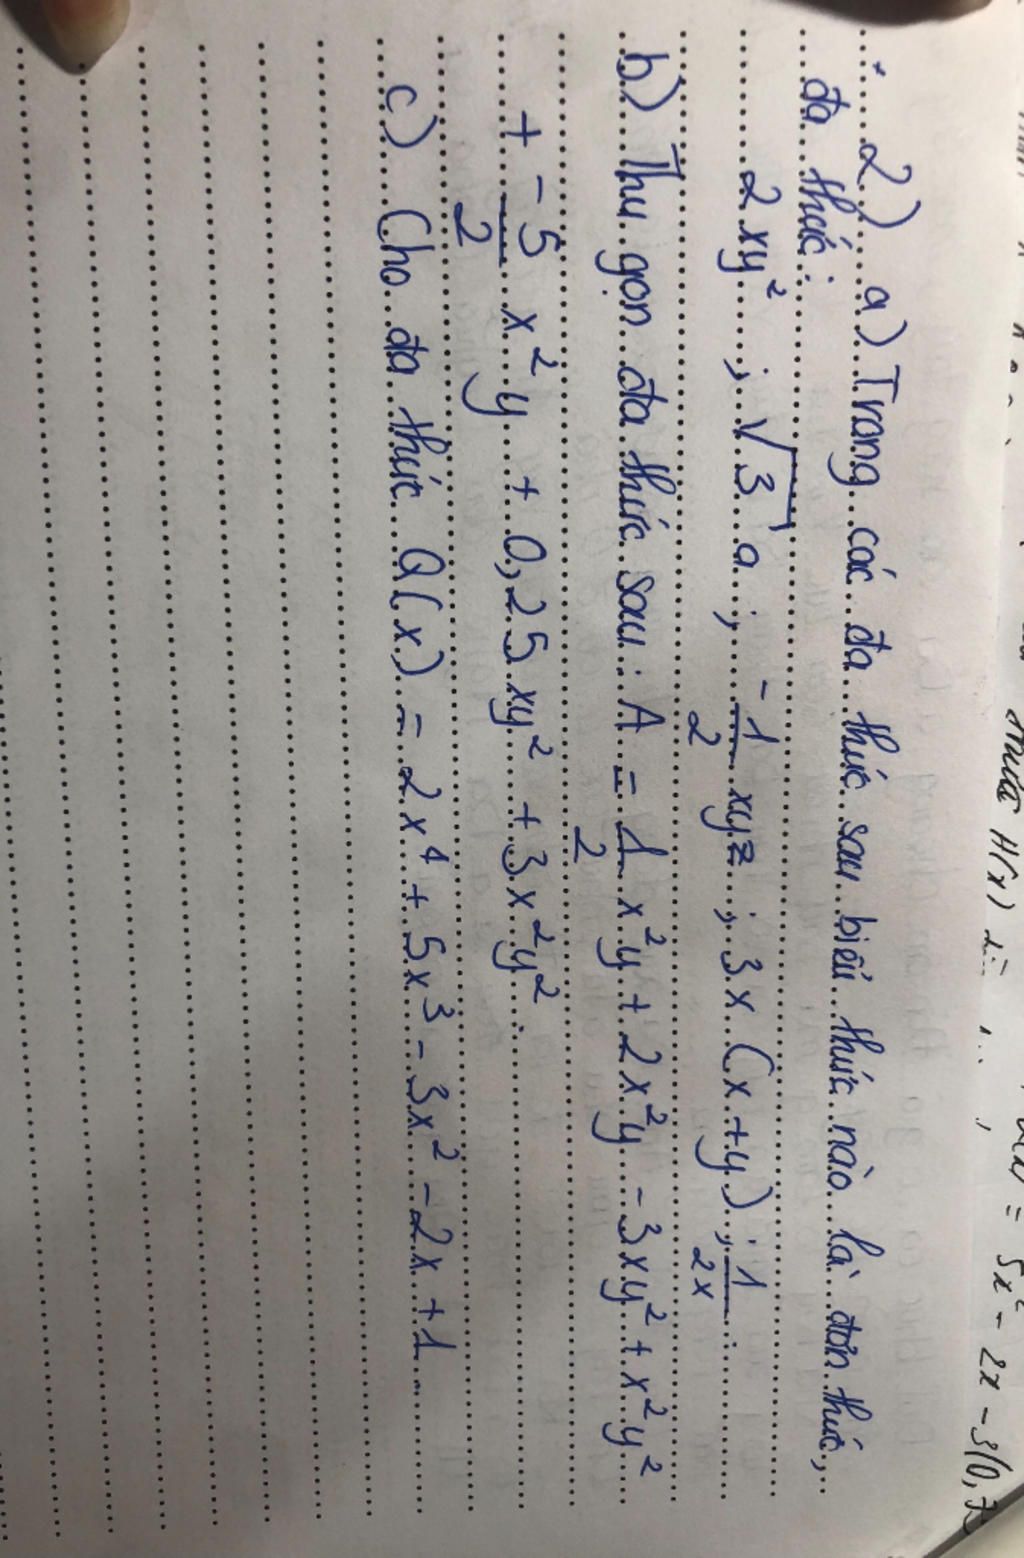 thức H(x)
= 5x² - 2x - 3(0,75
2) a) Trong các đa thức sau biểu thức nào là đơn thức,
đa thức:
2xy² ; √3 a ; -1/2 xyz ; 3x (x+y) ; 1/2x .
b) Thu gọn đa thức sau: A = 1/2 x²y + 2x²y - 3xy² + x²y²
+ -5/2 x²y + 0,25xy² + 3x²y².
c) Cho đa thức Q(x) = 2x⁴ + 5x³ - 3x² - 2x + 1